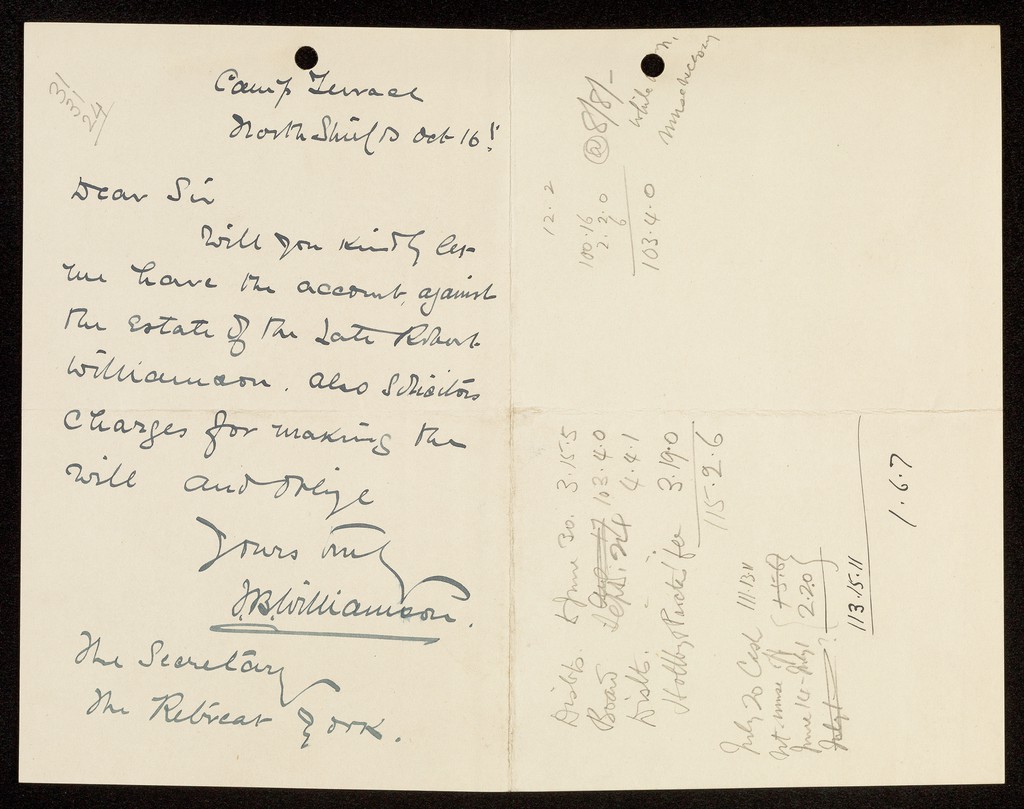 31
31
24
Camp Terrace
North Shields Oct 16!
Dear Sir
Will you kindly let
me have the account, against
the Estate of the Late Robert
Williamson. also Solicitors
Charges for making the
Will and oblige
Yours truly
J.B. Williamson.
The Secretary
The Retreat York.
12.2
@ 8/8/-
while
nurse necessary
100.16
2.2.0
6
103.4.0
Disbts. June 30. 3.15.5
Board Sept. 24 103.4.0
Disbts. 4.4.1
fee 3.19.0
115.2.6
July 20 Cash 111.13.11
nt. nurse
June 14 - July 1 2.2.0
July 1
113.15.11
1.6.7